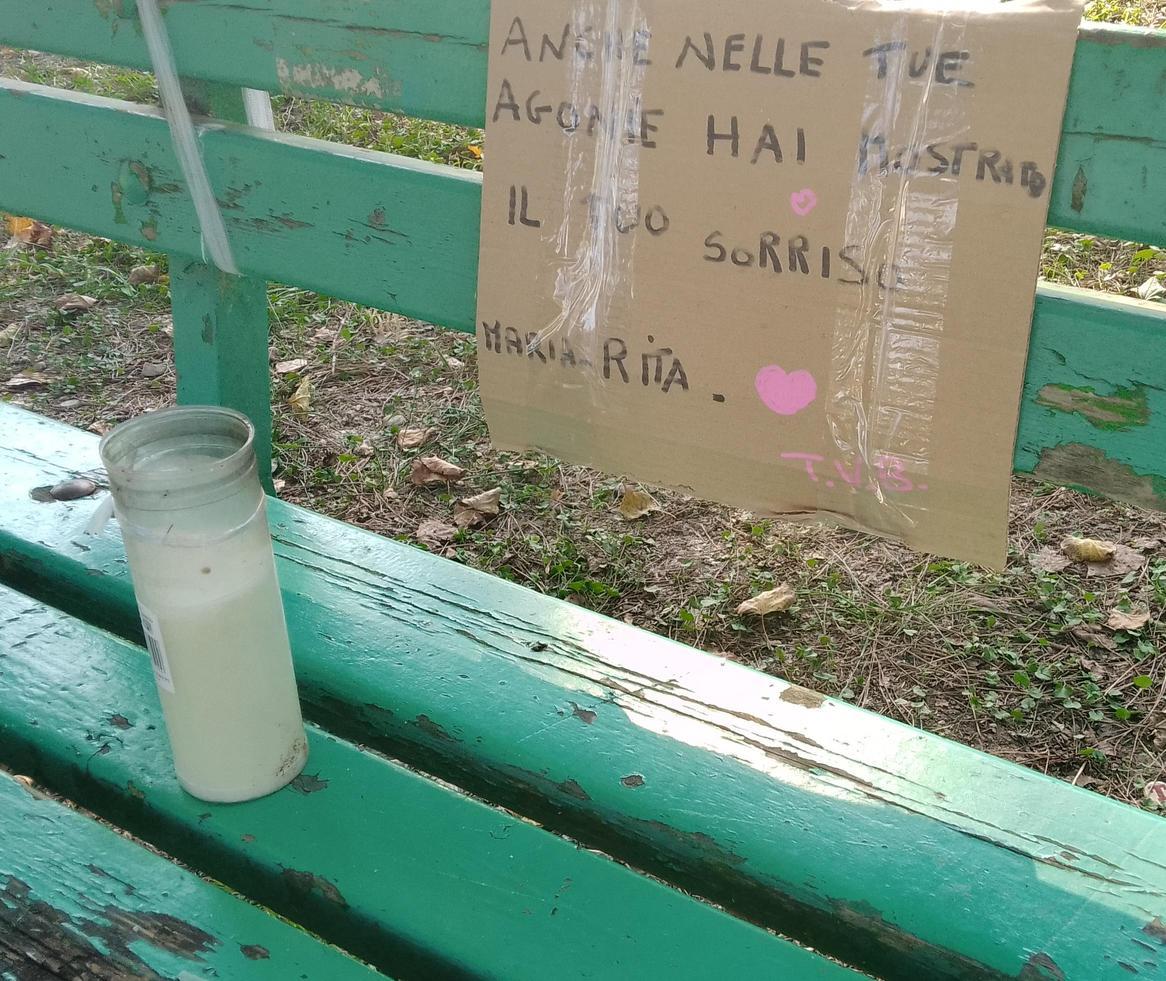 ANCHE NELLE TUE
AGONIE HAI MOSTRATO
IL TUO SORRISO
MARIA-RITA.
T.V.B.